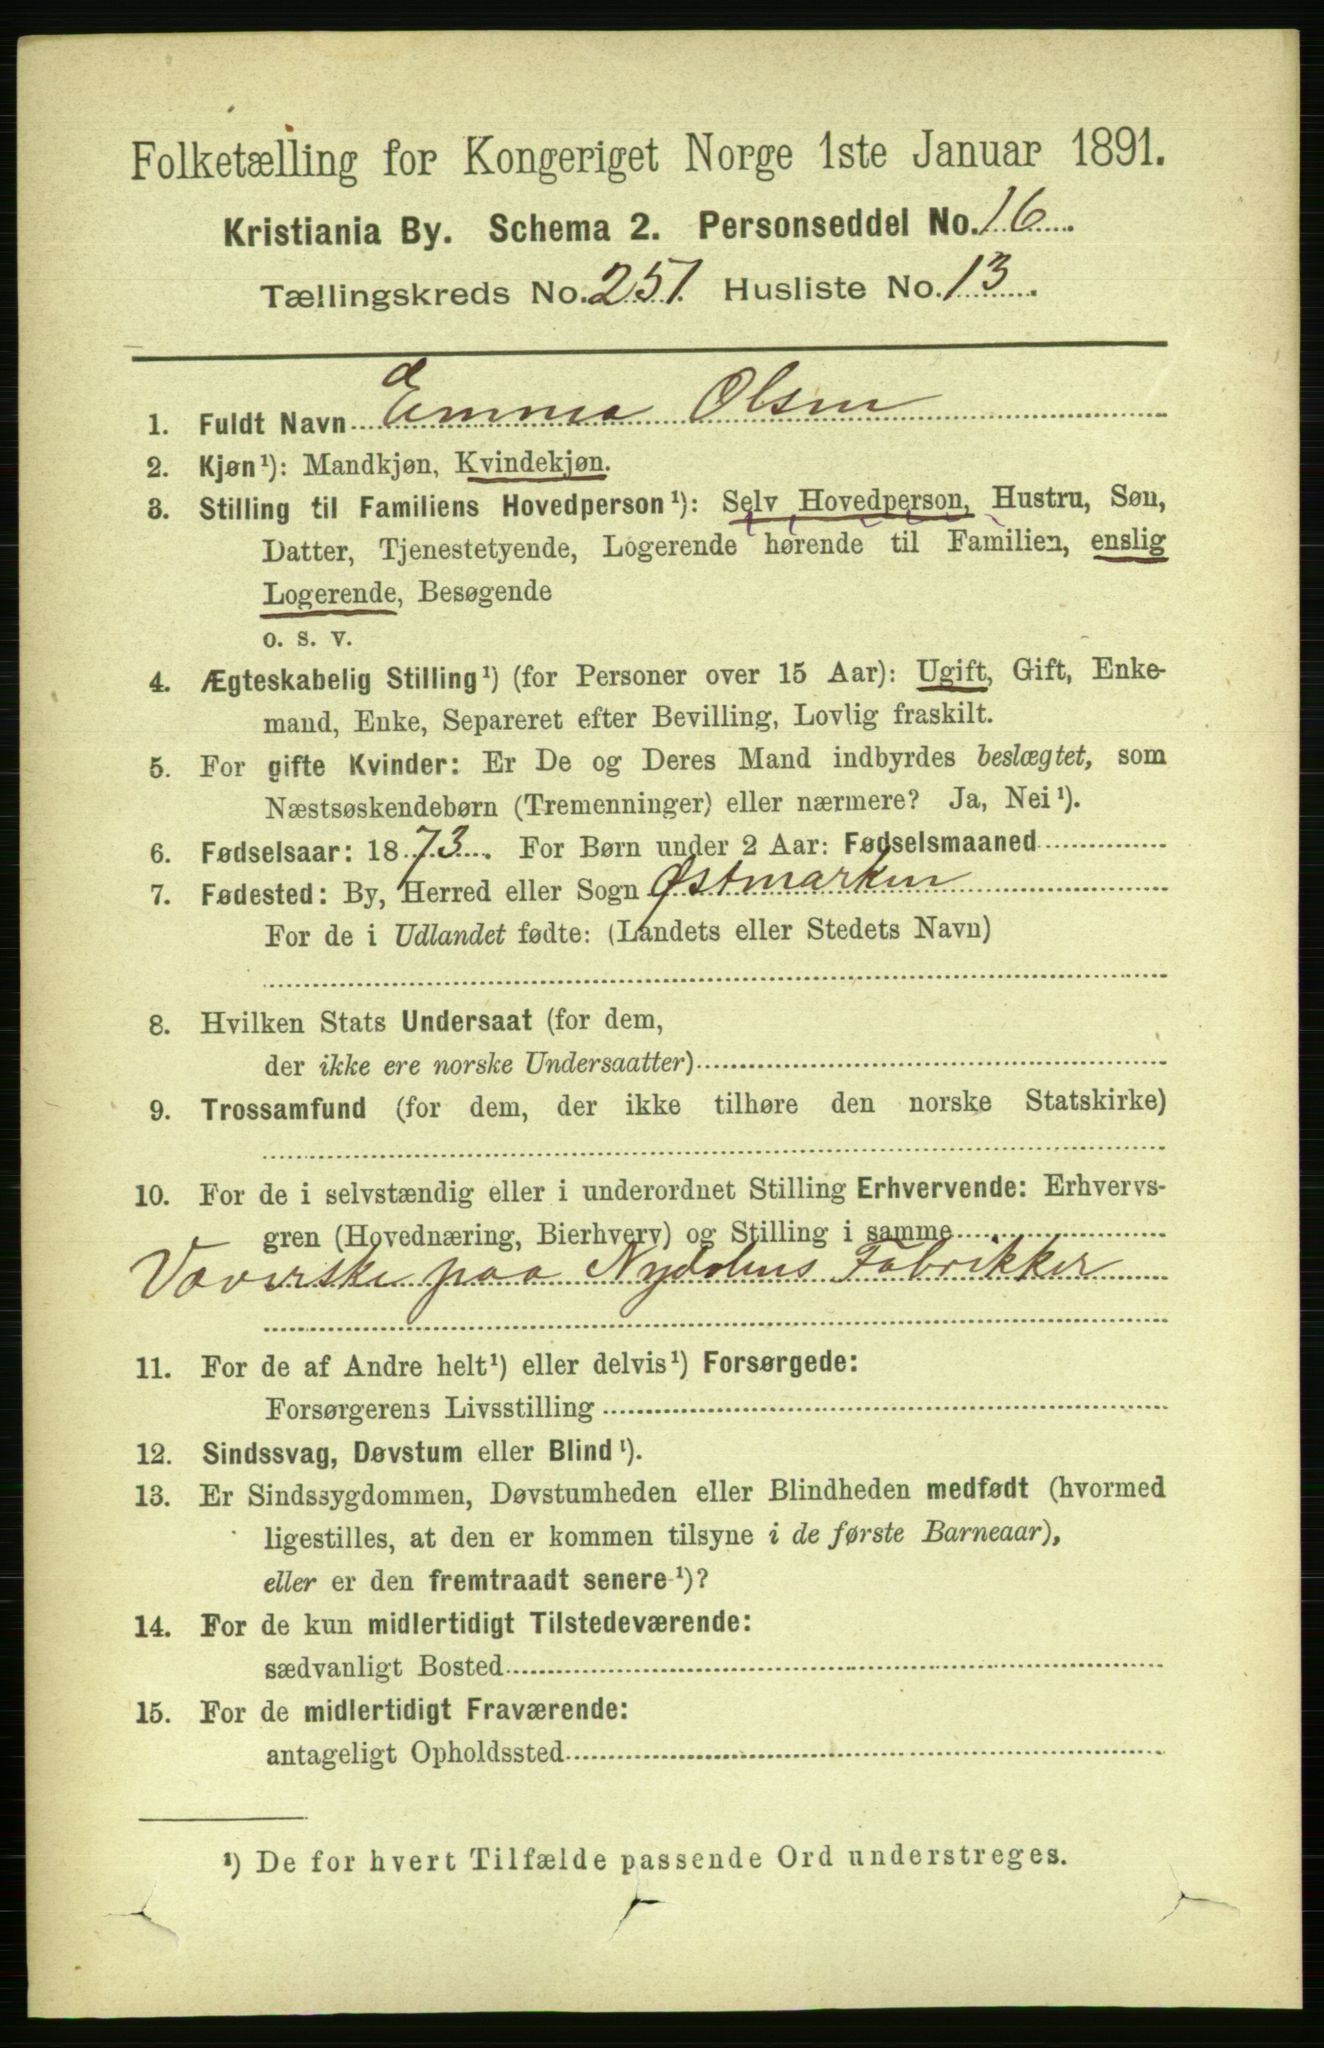 Folketælling for Kongeriget Norge 1ste Januar 1891.
Kristiania By. Schema 2. Personseddel No. 16.
Tællingskreds No. 251. Husliste No. 13.
d
1. Fuldt Navn Emma Olsen
2. Kjøn¹): Mandkjøn, Kvindekjøn.
3. Stilling til Familiens Hovedperson¹): Selv Hovedperson, Hustru, Søn,
Datter, Tjenestetyende, Logerende hørende til Familien, enslig
Logerende, Besøgende
o. s. v.
4. Ægteskabelig Stilling¹) (for Personer over 15 Aar): Ugift, Gift, Enke-
mand, Enke, Separeret efter Bevilling, Lovlig fraskilt.
5. For gifte Kvinder: Er De og Deres Mand indbyrdes beslægtet, som
Næstsøskendebørn (Tremenninger) eller nærmere? Ja, Nei¹).
6. Fødselsaar: 1873. For Børn under 2 Aar: Fødselsmaaned
7. Fødested: By, Herred eller Sogn Østmarken
For de i Udlandet fødte: (Landets eller Stedets Navn)
8. Hvilken Stats Undersaat (for dem,
der ikke ere norske Undersaatter)
9. Trossamfund (for dem, der ikke tilhøre den norske Statskirke)
10. For de i selvstændig eller i underordnet Stilling Erhvervende: Erhvervs-
gren (Hovednæring, Bierhverv) og Stilling i samme
Væverske paa Nydalens Fabrikker
11. For de af Andre helt¹) eller delvis¹) Forsørgede:
Forsørgerens Livsstilling
12. Sindssvag, Døvstum eller Blind¹).
13. Er Sindssygdommen, Døvstumheden eller Blindheden medfødt (hvormed
ligestilles, at den er kommen tilsyne i de første Barneaar),
eller er den fremtraadt senere¹)?
14. For de kun midlertidigt Tilstedeværende:
sædvanligt Bosted
15. For de midlertidigt Fraværende:
antageligt Opholdssted
¹) De for hvert Tilfælde passende Ord understreges.